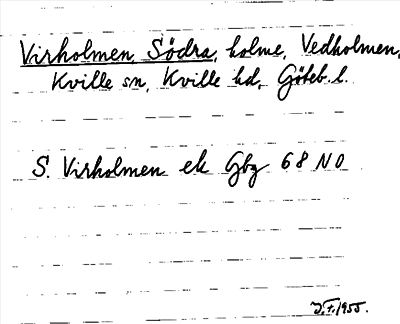 Virholmen, Södra, holme, Vedholmen,
Kville sn, Kville hd, Göteb. l.
S. Virholmen ek Gbg 68 NO
1955.